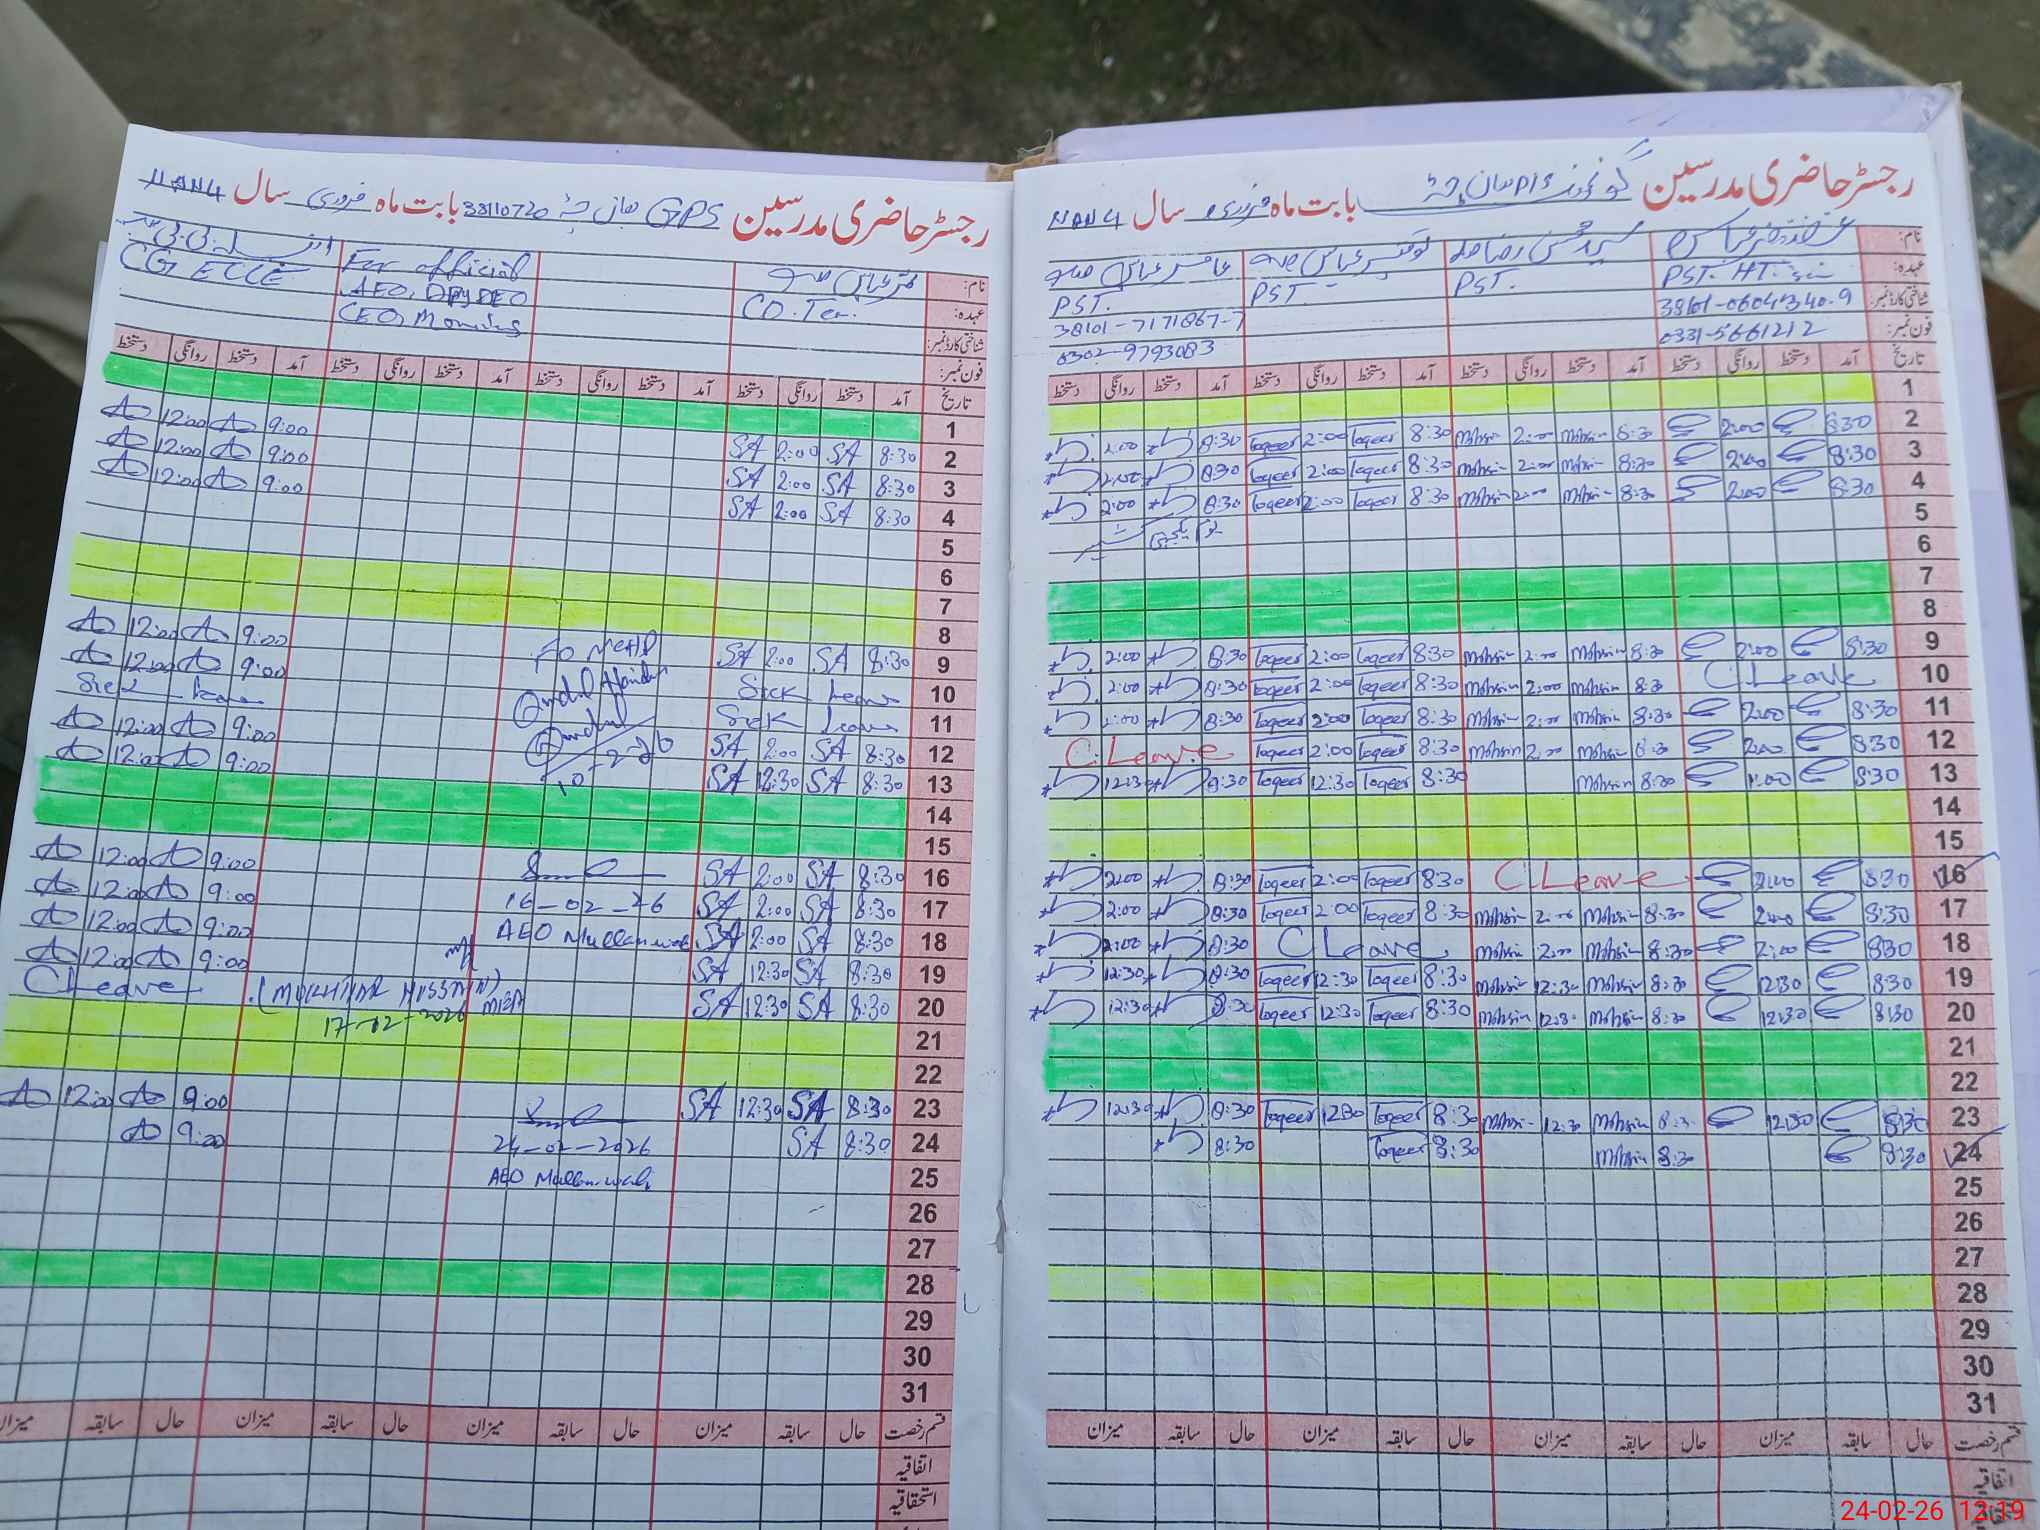 رجسٹر حاضری مدرسین GPS 38110720 بابت ماہ فروری سال
نام:
عہدہ: CO. Ter. For official CG ECCE
AEO, Dpy DEO
CEO, Monitring
شناختی کارڈ نمبر:
فون نمبر:
تاریخ آمد دستخط روانگی دستخط آمد دستخط روانگی دستخط آمد دستخط روانگی دستخط آمد دستخط روانگی دستخط
1
2 8:30 SA 2:00 SA 9:00 12:00
3 8:30 SA 2:00 SA 9:00 12:00
4 8:30 SA 2:00 SA 9:00 12:00
5
6
7
8
9 8:30 SA 2:00 SA 9:00 12:00
10 Sick Leave 9:00 12:00
11 Sick Leave Sick Leave
12 8:30 SA 2:00 SA 10-2-26 9:00 12:00
13 8:30 SA 12:30 SA 9:00 12:00
14
15
16 8:30 SA 2:00 SA 9:00 12:00
17 8:30 SA 2:00 SA 16-02-26 9:00 12:00
18 8:30 SA 2:00 SA AEO Mullanwali 9:00 12:00
19 8:30 SA 12:30 SA 9:00 12:00
20 8:30 SA 12:30 SA (MUKHTIAR HUSSAIN) C Leave
17-02-2026
21
22
23 8:30 SA 12:30 SA 9:00 12:00
24 8:30 SA 24-02-2026 9:00
25 AEO Mullanwali
26
27
28
29
30
31
قسم رخصت حال سابقہ میزان حال سابقہ میزان حال سابقہ میزان حال سابقہ میزان
اتفاقیہ
استحقاقیہ
رجسٹر حاضری مدرسین بابت ماہ فروری سال
نام: غضنفر عباس سید محسن رضا توقیر عباس عامر عباس
عہدہ: PST. HT. PST. PST. PST.
شناختی کارڈ نمبر: 38101-0604340-9 38101-7171867-7
فون نمبر: 0331-5661212 0302-9793083
تاریخ آمد دستخط روانگی دستخط آمد دستخط روانگی دستخط آمد دستخط روانگی دستخط آمد دستخط روانگی دستخط
1
2 8:30 2:00 8:30 Mohsin 2:00 Mohsin 8:30 Toqeer 2:00 Toqeer 8:30 2:00
3 8:30 2:00 8:30 Mohsin 2:00 Mohsin 8:30 Toqeer 2:00 Toqeer 8:30 2:00
4 8:30 2:00 8:30 Mohsin 2:00 Mohsin 8:30 Toqeer 2:00 Toqeer 8:30 2:00
5
6
7
8
9 8:30 2:00 8:30 Mohsin 2:00 Mohsin 8:30 Toqeer 2:00 Toqeer 8:30 2:00
10 C Leave 8:30 Mohsin 2:00 Mohsin 8:30 Toqeer 2:00 Toqeer 8:30 2:00
11 8:30 2:00 8:30 Mohsin 2:00 Mohsin 8:30 Toqeer 2:00 Toqeer 8:30 2:00
12 8:30 2:00 8:30 Mohsin 2:00 Mohsin 8:30 Toqeer 2:00 Toqeer C Leave
13 8:30 1:00 8:30 Mohsin 8:30 Toqeer 12:30 Toqeer 8:30 12:30
14
15
16 8:30 2:00 C Leave 8:30 Toqeer 2:00 Toqeer 8:30 2:00
17 8:30 2:00 8:30 Mohsin 2:00 Mohsin 8:30 Toqeer 2:00 Toqeer 8:30 2:00
18 8:30 2:00 8:30 Mohsin 2:00 Mohsin C Leave 8:30 2:00
19 8:30 12:30 8:30 Mohsin 12:30 Mohsin 8:30 Toqeer 12:30 Toqeer 8:30 12:30
20 8:30 12:30 8:30 Mohsin 12:30 Mohsin 8:30 Toqeer 12:30 Toqeer 8:30 12:30
21
22
23 8:30 12:30 8:30 Mohsin 12:30 Mohsin 8:30 Toqeer 12:30 Toqeer 8:30 12:30
24 8:30 8:30 Mohsin 8:30 Toqeer 8:30
25
26
27
28
29
30
31
قسم رخصت حال سابقہ میزان حال سابقہ میزان حال سابقہ میزان حال سابقہ میزان
اتفاقیہ
24-02-26 12:19